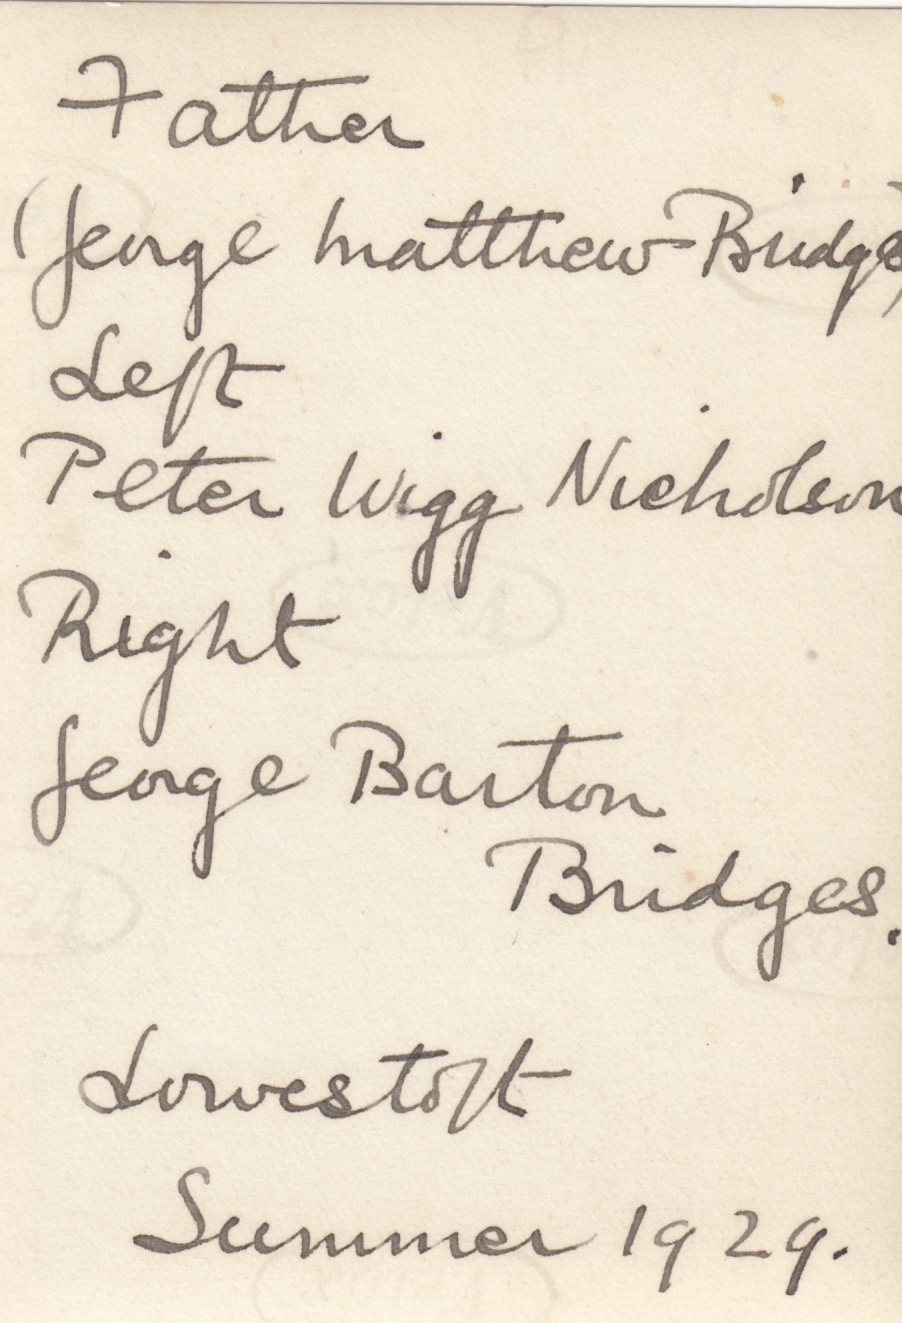 Father
(George Matthew Bridges)
Left
Peter Wigg Nicholson
Right
George Barton
Bridges.
Lowestoft
Summer 1929.